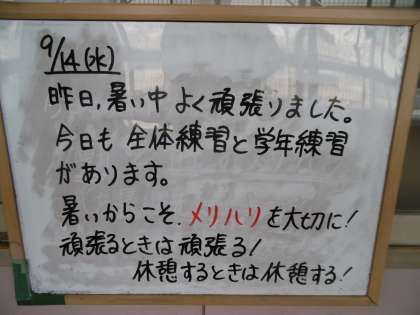 9/14(水)
昨日、暑い中よく頑張りました。
今日も全体練習と学年練習
があります。
暑いからこそ、メリハリを大切に!
頑張るときは頑張る!
休憩するときは休憩する!